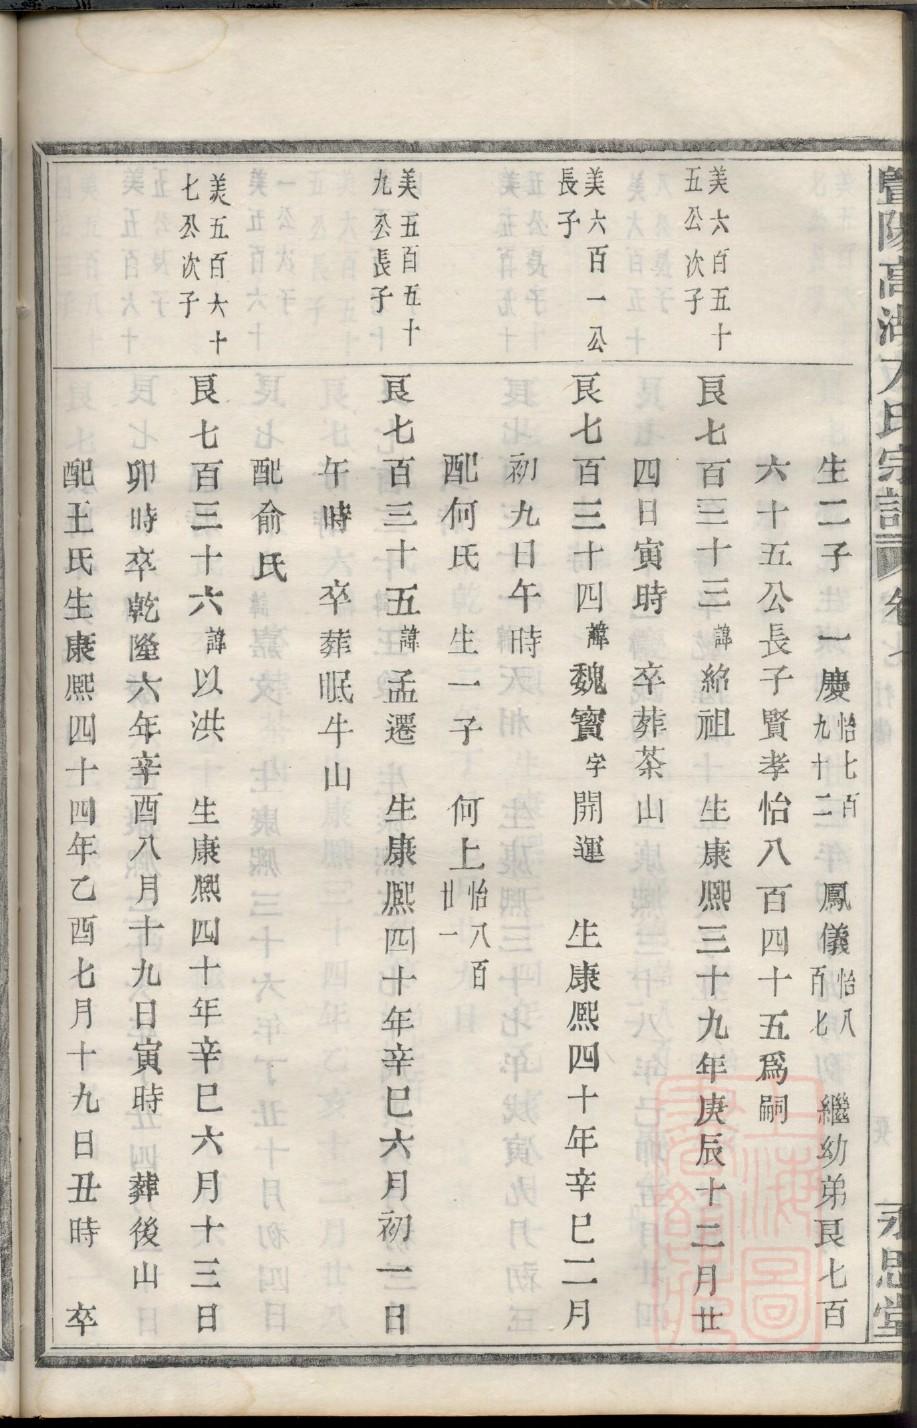 暨陽高湖方氏宗譜 卷七 永思堂
生二子 一慶怡七百九十二 鳳儀怡八百七 繼幼弟艮七百
六十五公長子賢孝怡八百四十五爲嗣
美六百五十五公次子
艮七百三十三諱紹祖 生康熙三十九年庚辰十二月廿
四日寅時 卒葬茶山
美六百一公長子
艮七百三十四諱魏寳字開運 生康熙四十年辛巳二月
初九日午時
配何氏 生一子 何上怡八百廿一
美五百五十九公長子
艮七百三十五諱孟遷 生康熙四十年辛巳六月初一日
午時 卒葬眠牛山
配俞氏
美五百六十七公次子
艮七百三十六諱以洪 生康熙四十年辛巳六月十三日
卯時卒乾隆六年辛酉八月十九日寅時 葬後山
配王氏生康熙四十四年乙酉七月十九日丑時 卒